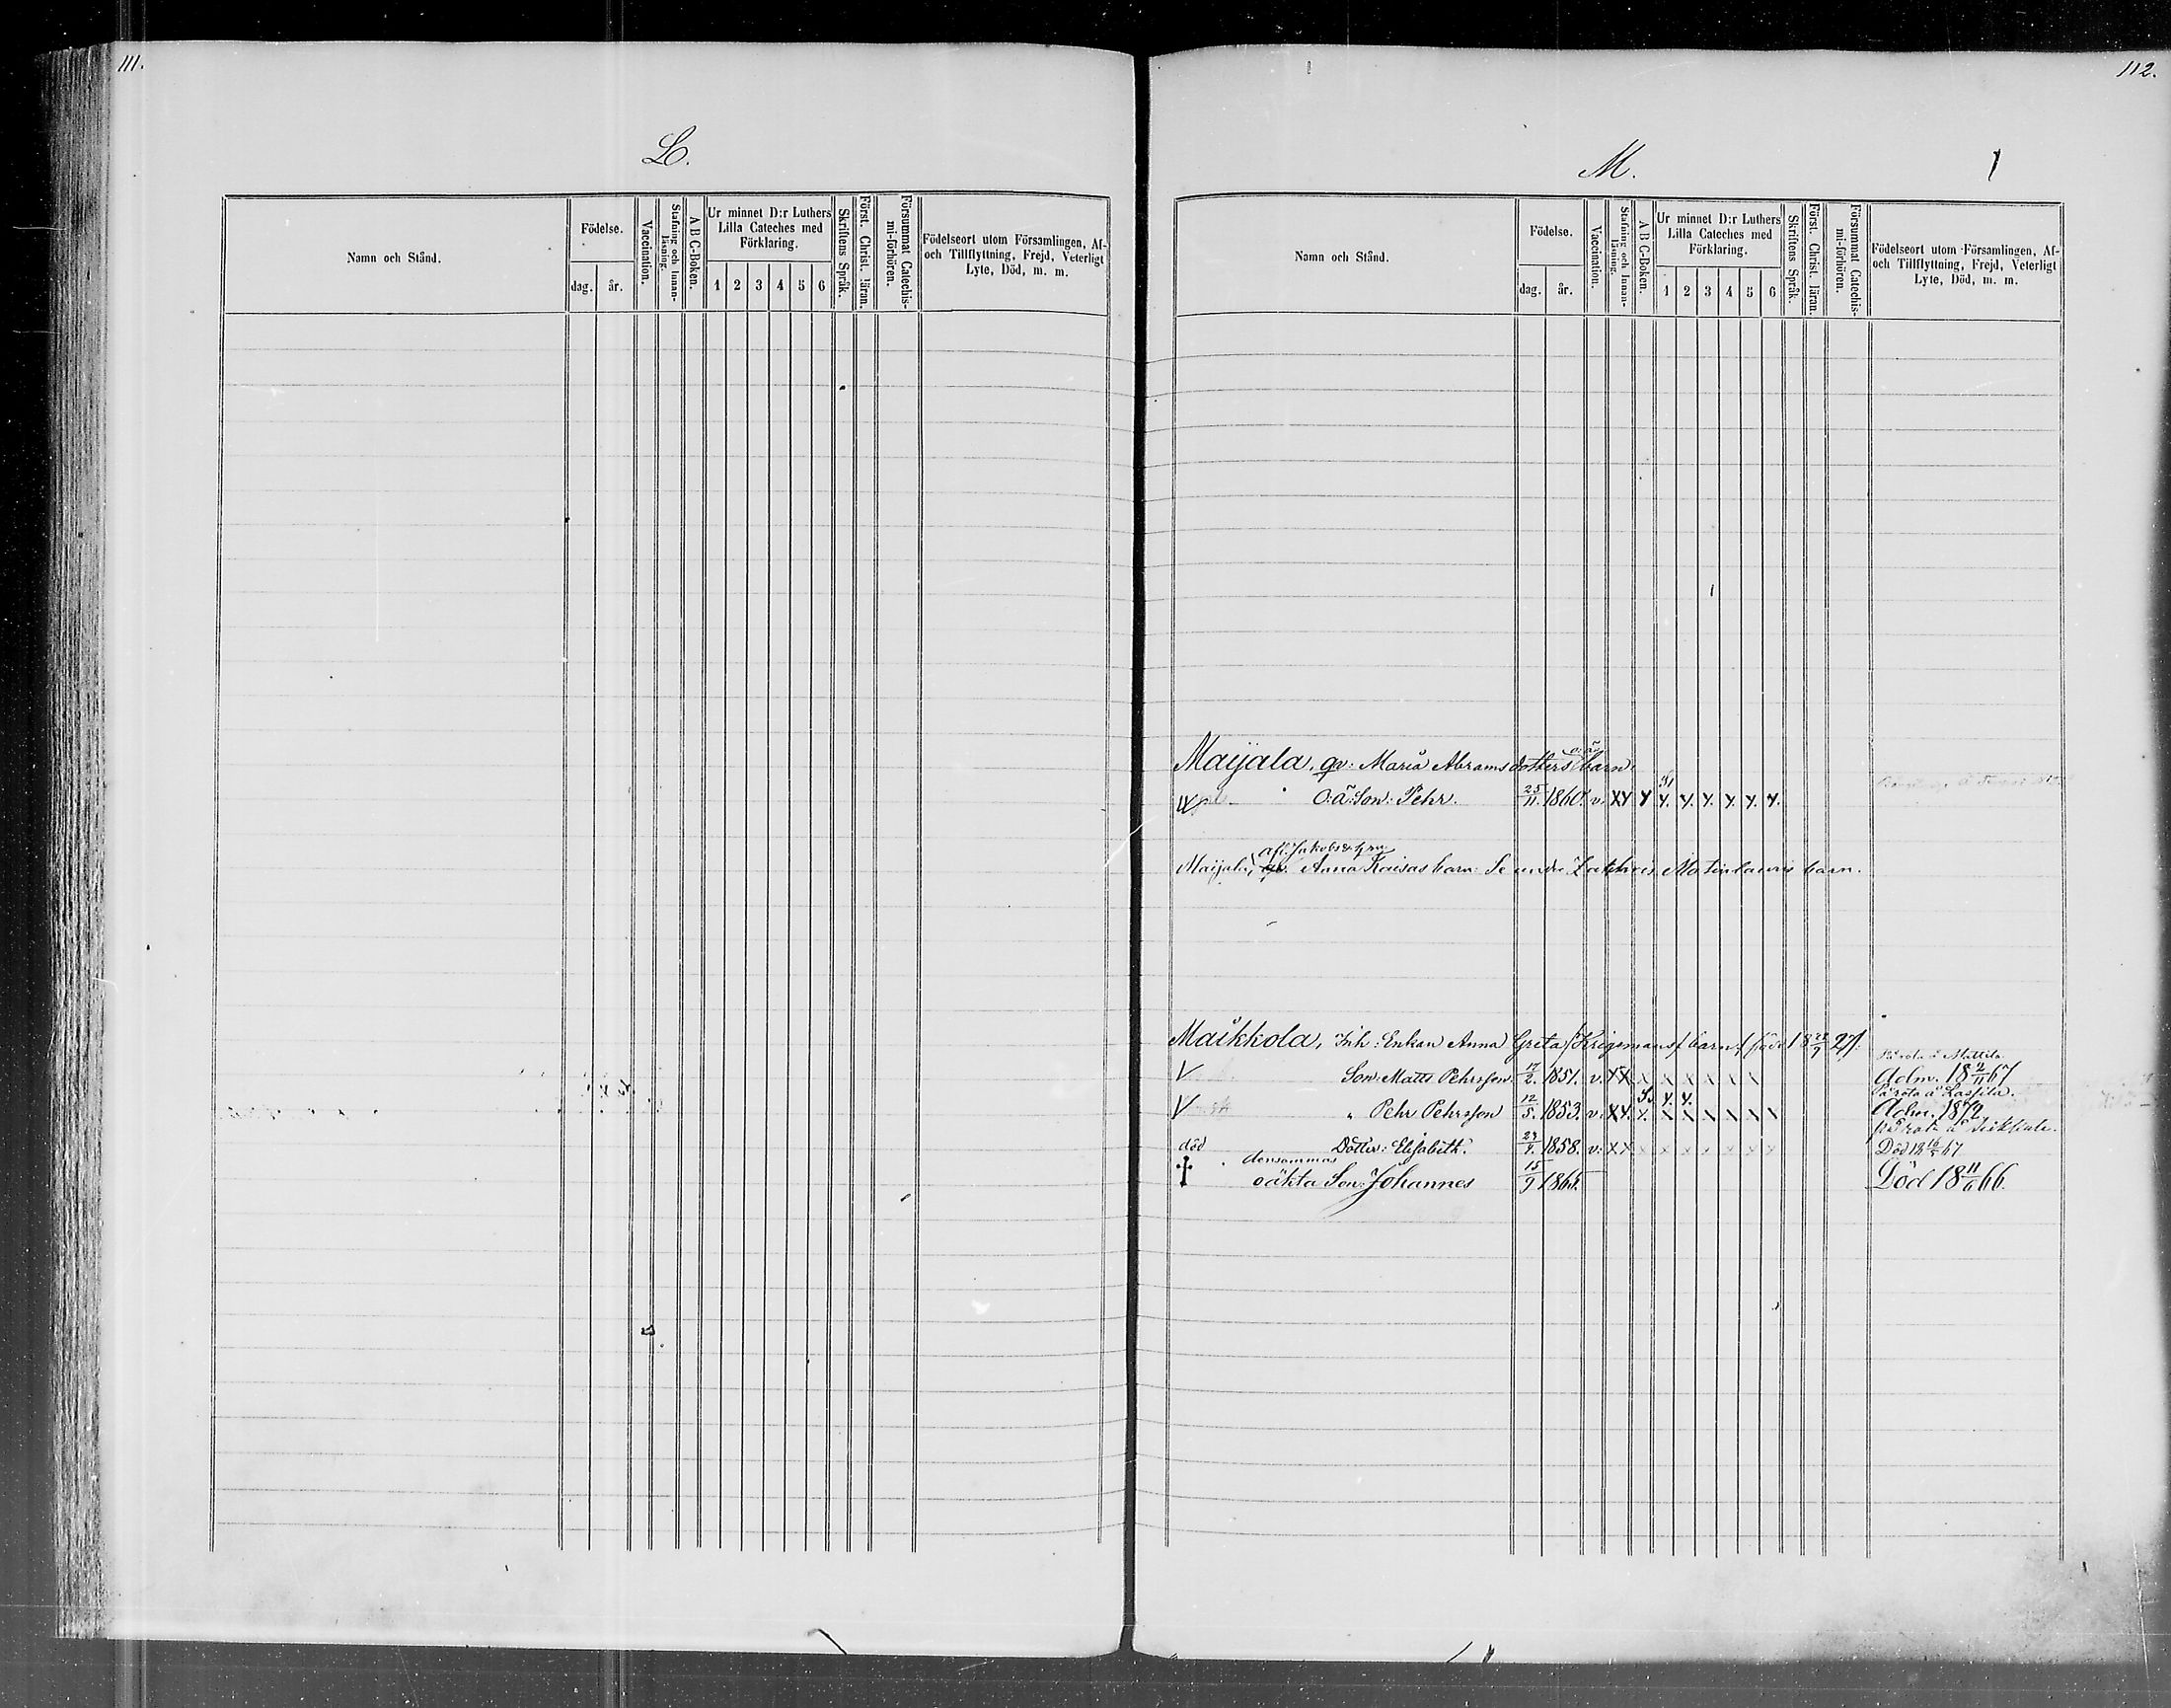 111.
L.
Namn och Stånd.
Födelse.
dag. år.
Vaccination.
Stafning och Innan-
läsning.
A B C-Boken.
Ur minnet D:r Luthers
Lilla Cateches med
Förklaring.
1 2 3 4 5 6
Skriftens Språk.
Först. Christ. läran.
Försummat Catechis-
mi-förhören.
Födelseort utom Församlingen, Af-
och Tillflyttning, Frejd, Veterligt
Lyte, Död, m. m.
112.
M.
Namn och Stånd.
Födelse.
dag. år.
Vaccination.
Stafning och Innan-
läsning.
A B C-Boken.
Ur minnet D:r Luthers
Lilla Cateches med
Förklaring.
1 2 3 4 5 6
Skriftens Språk.
Först. Christ. läran.
Försummat Catechis-
mi-förhören.
Födelseort utom Församlingen, Af-
och Tillflyttning, Frejd, Veterligt
Lyte, Död, m. m.
Maijala, qv: Maria Abramsdotters o:ä barn:
O:ä: Son: Pehr. 25/11. 1860. v.
Maijala, Anna Kaisas barn: Se under Matinlauris barn.
Maikkola, Inh: Enkan Anna Greta /Krigsmans/ barn;
På rota å Mattila
V Son: Matts Pehrsson 1851. v. XX x x x x x x Adm. 18 2/11 67
På rota å Lassila.
V " Pehr Pehrsson 12/5. 1853. v. Adm. 1872
på rota å
död Dotter: Elisabeth. 1858. v. XX Död 67
densammas
† oäkta Son: Johannes 15/9 1865. Död 18 11/6 66.